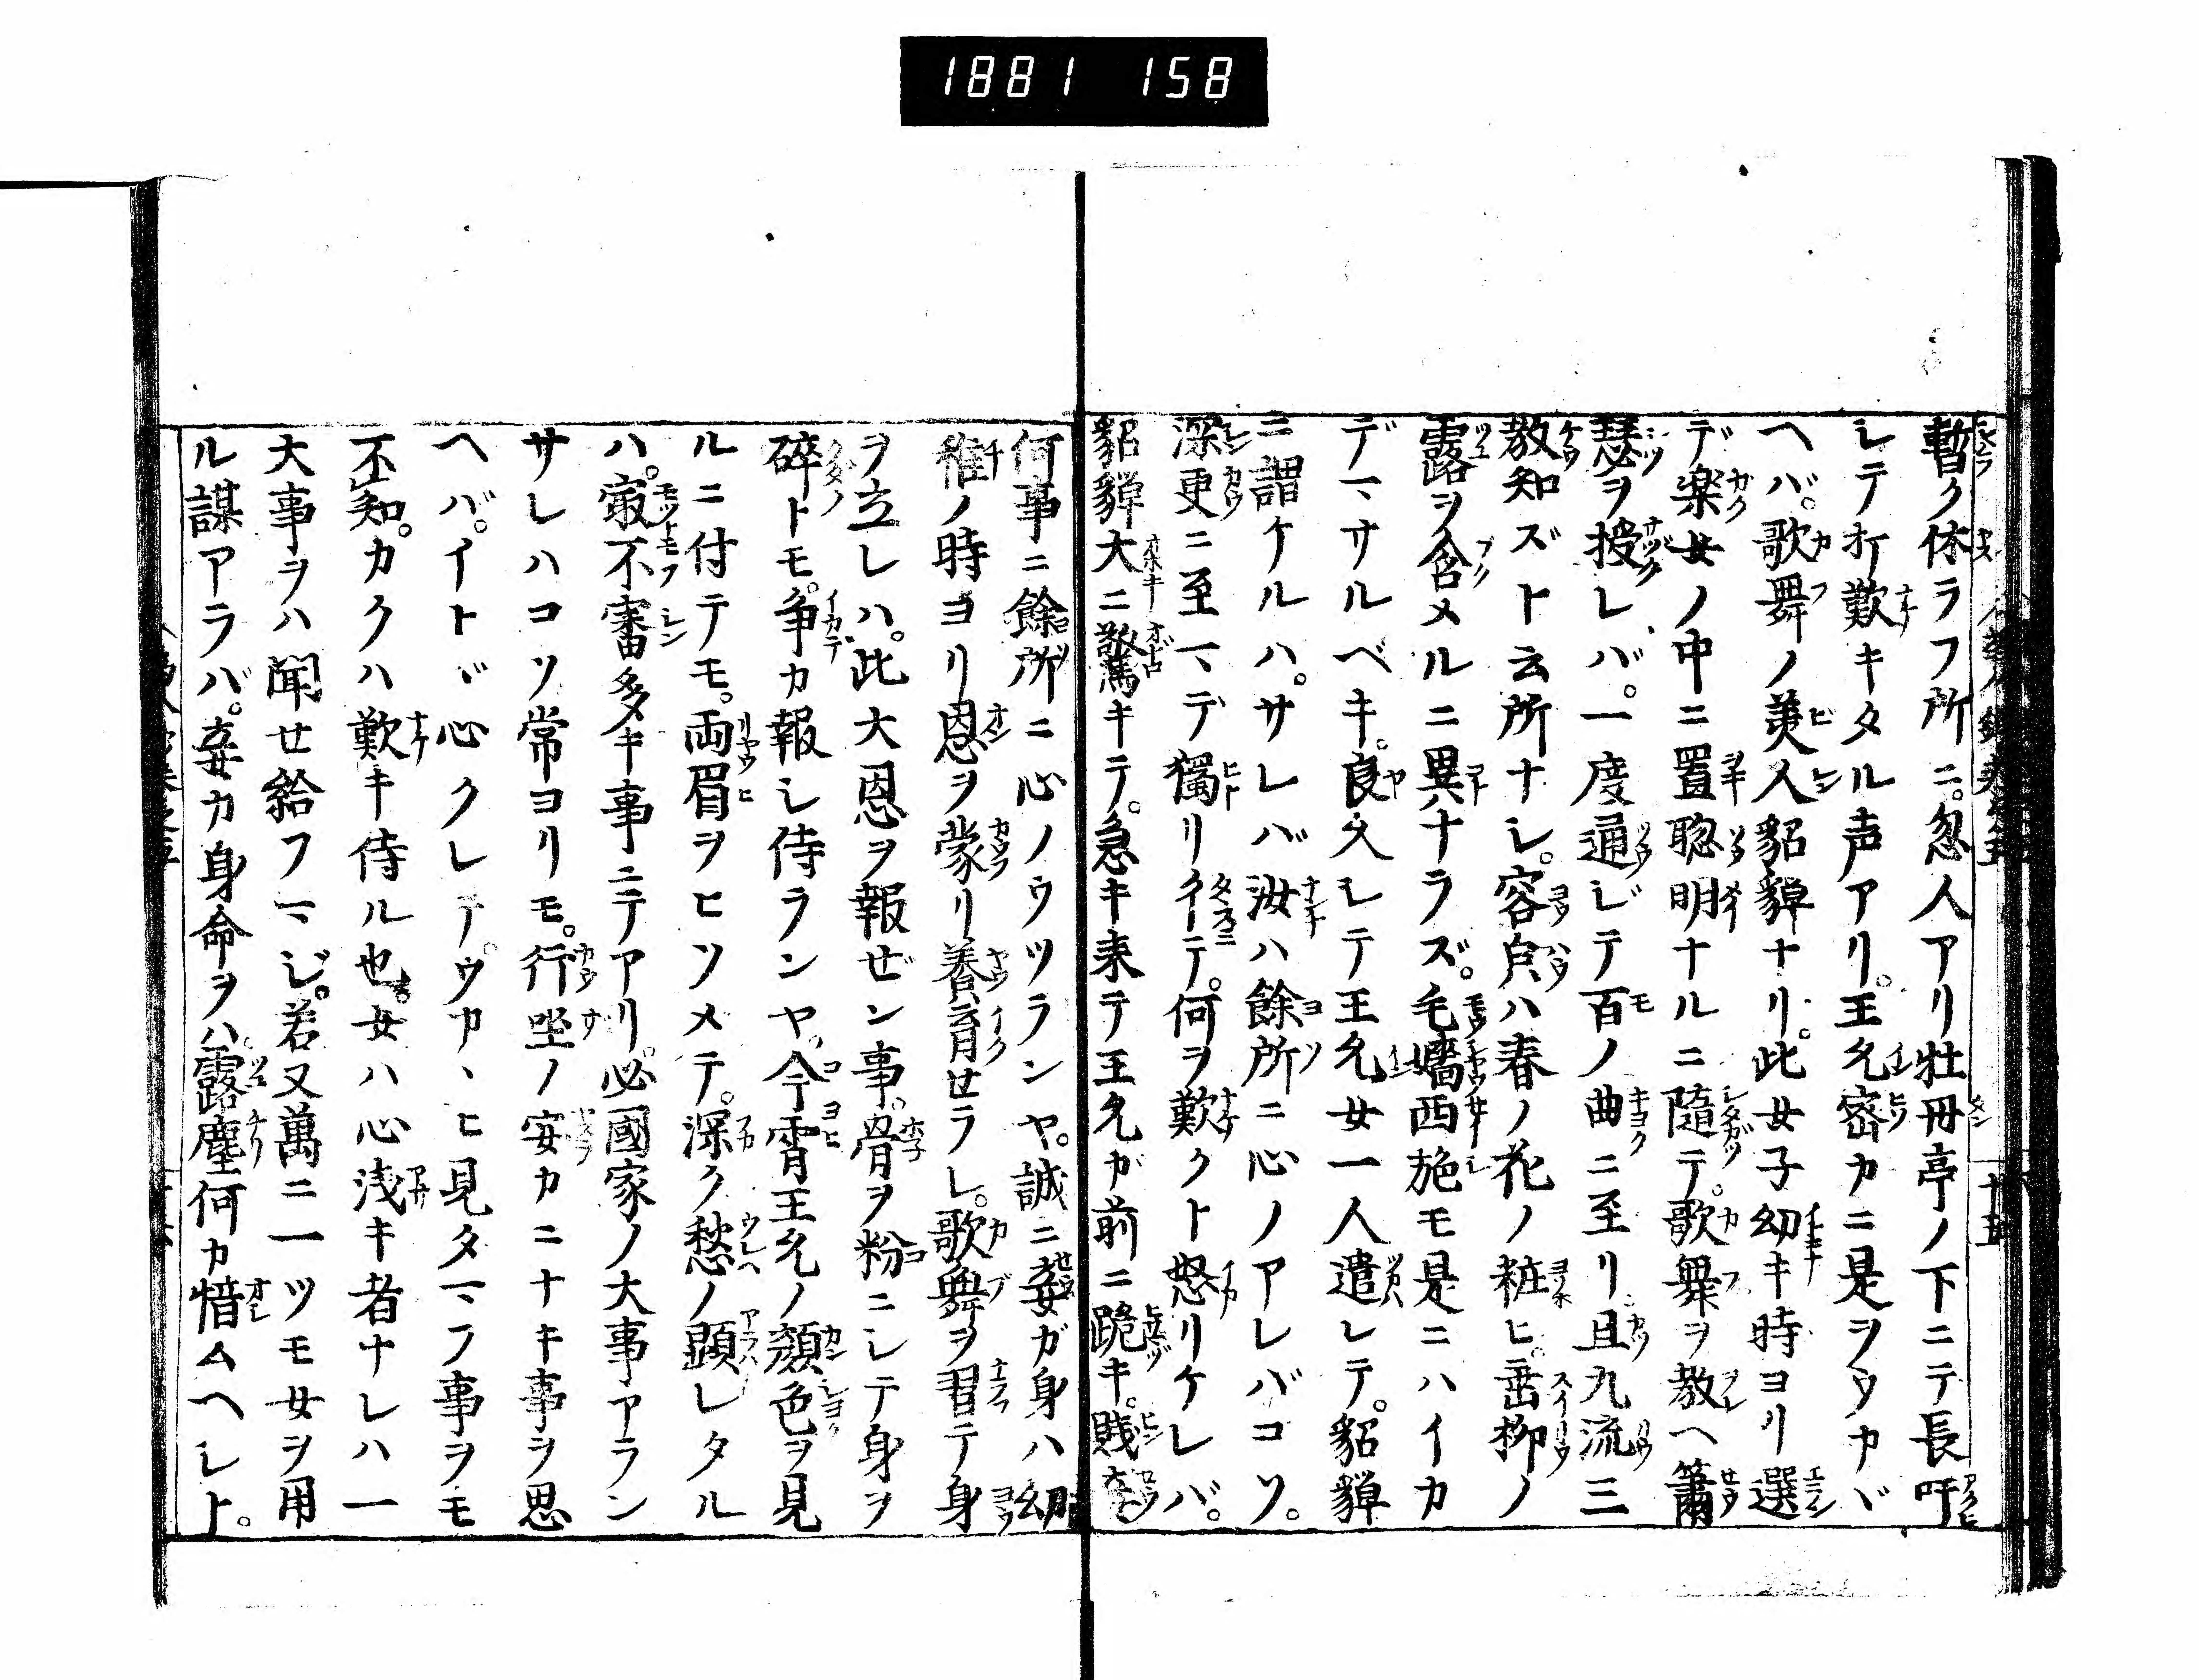 1881 158
暫ク休ラフ所ニ。忽人アリ牡丹亭ノ下ニテ長吁
シテ打歎キタル声アリ。王允密カニ是ヲウカヾ
ヘバ。歌舞ノ美人貂蝉ナリ。此女子幼キ時ヨリ選
デ楽女ノ中ニ置聡明ナルニ随テ。歌舞ヲ教ヘ簫
瑟ヲ授レバ。一度通ジテ百ノ曲ニ至リ且九流三
教知ズト云所ナシ。容㒵ハ春ノ花ノ粧ヒ。垂柳ノ
露ヲ含メルニ異ナラズ。毛嬙西施モ是ニハイカ
デマサルベキ。良久シテ王允女一人遣シテ。貂蝉
ニ謂ケルハ。サレバ汝ハ餘所ニ心ノアレバコソ。
深更ニ至マデ獨リイテ。何ヲ歎クト怒リケレバ。
貂蝉大ニ驚キテ。急キ来テ王允ガ前ニ跪キ。賎妾
何事ニ餘所ニ心ノウツランヤ。誠ニ妾ガ身ハ幼
稚ノ時ヨリ恩ヲ蒙リ養育セラレ。歌舞ヲ習テ身
ヲ立レハ。此大恩ヲ報ゼン事。骨ヲ粉ニシテ身ヲ
碎トモ。争カ報シ侍ランヤ。今宵王允ノ顔色ヲ見
ルニ付テモ。両眉ヲヒソメテ。深ク愁ノ顕レタル
ハ。㝡不審多キ事ニテアリ。必國家ノ大事アラン
サレハコソ常ヨリモ。行坐ノ安カニナキ事ヲ思
ヘバ。イトヾ心クレテ。ウカヽヒ見タマフ事ヲモ
不知。カクハ歎キ侍ル也。女ハ心浅キ者ナレハ一
大事ヲハ聞せ給フマジ。若又萬ニ一ツモ女ヲ用
ル謀アラバ。妾カ身命ヲハ。露塵何カ惜ムヘシト。